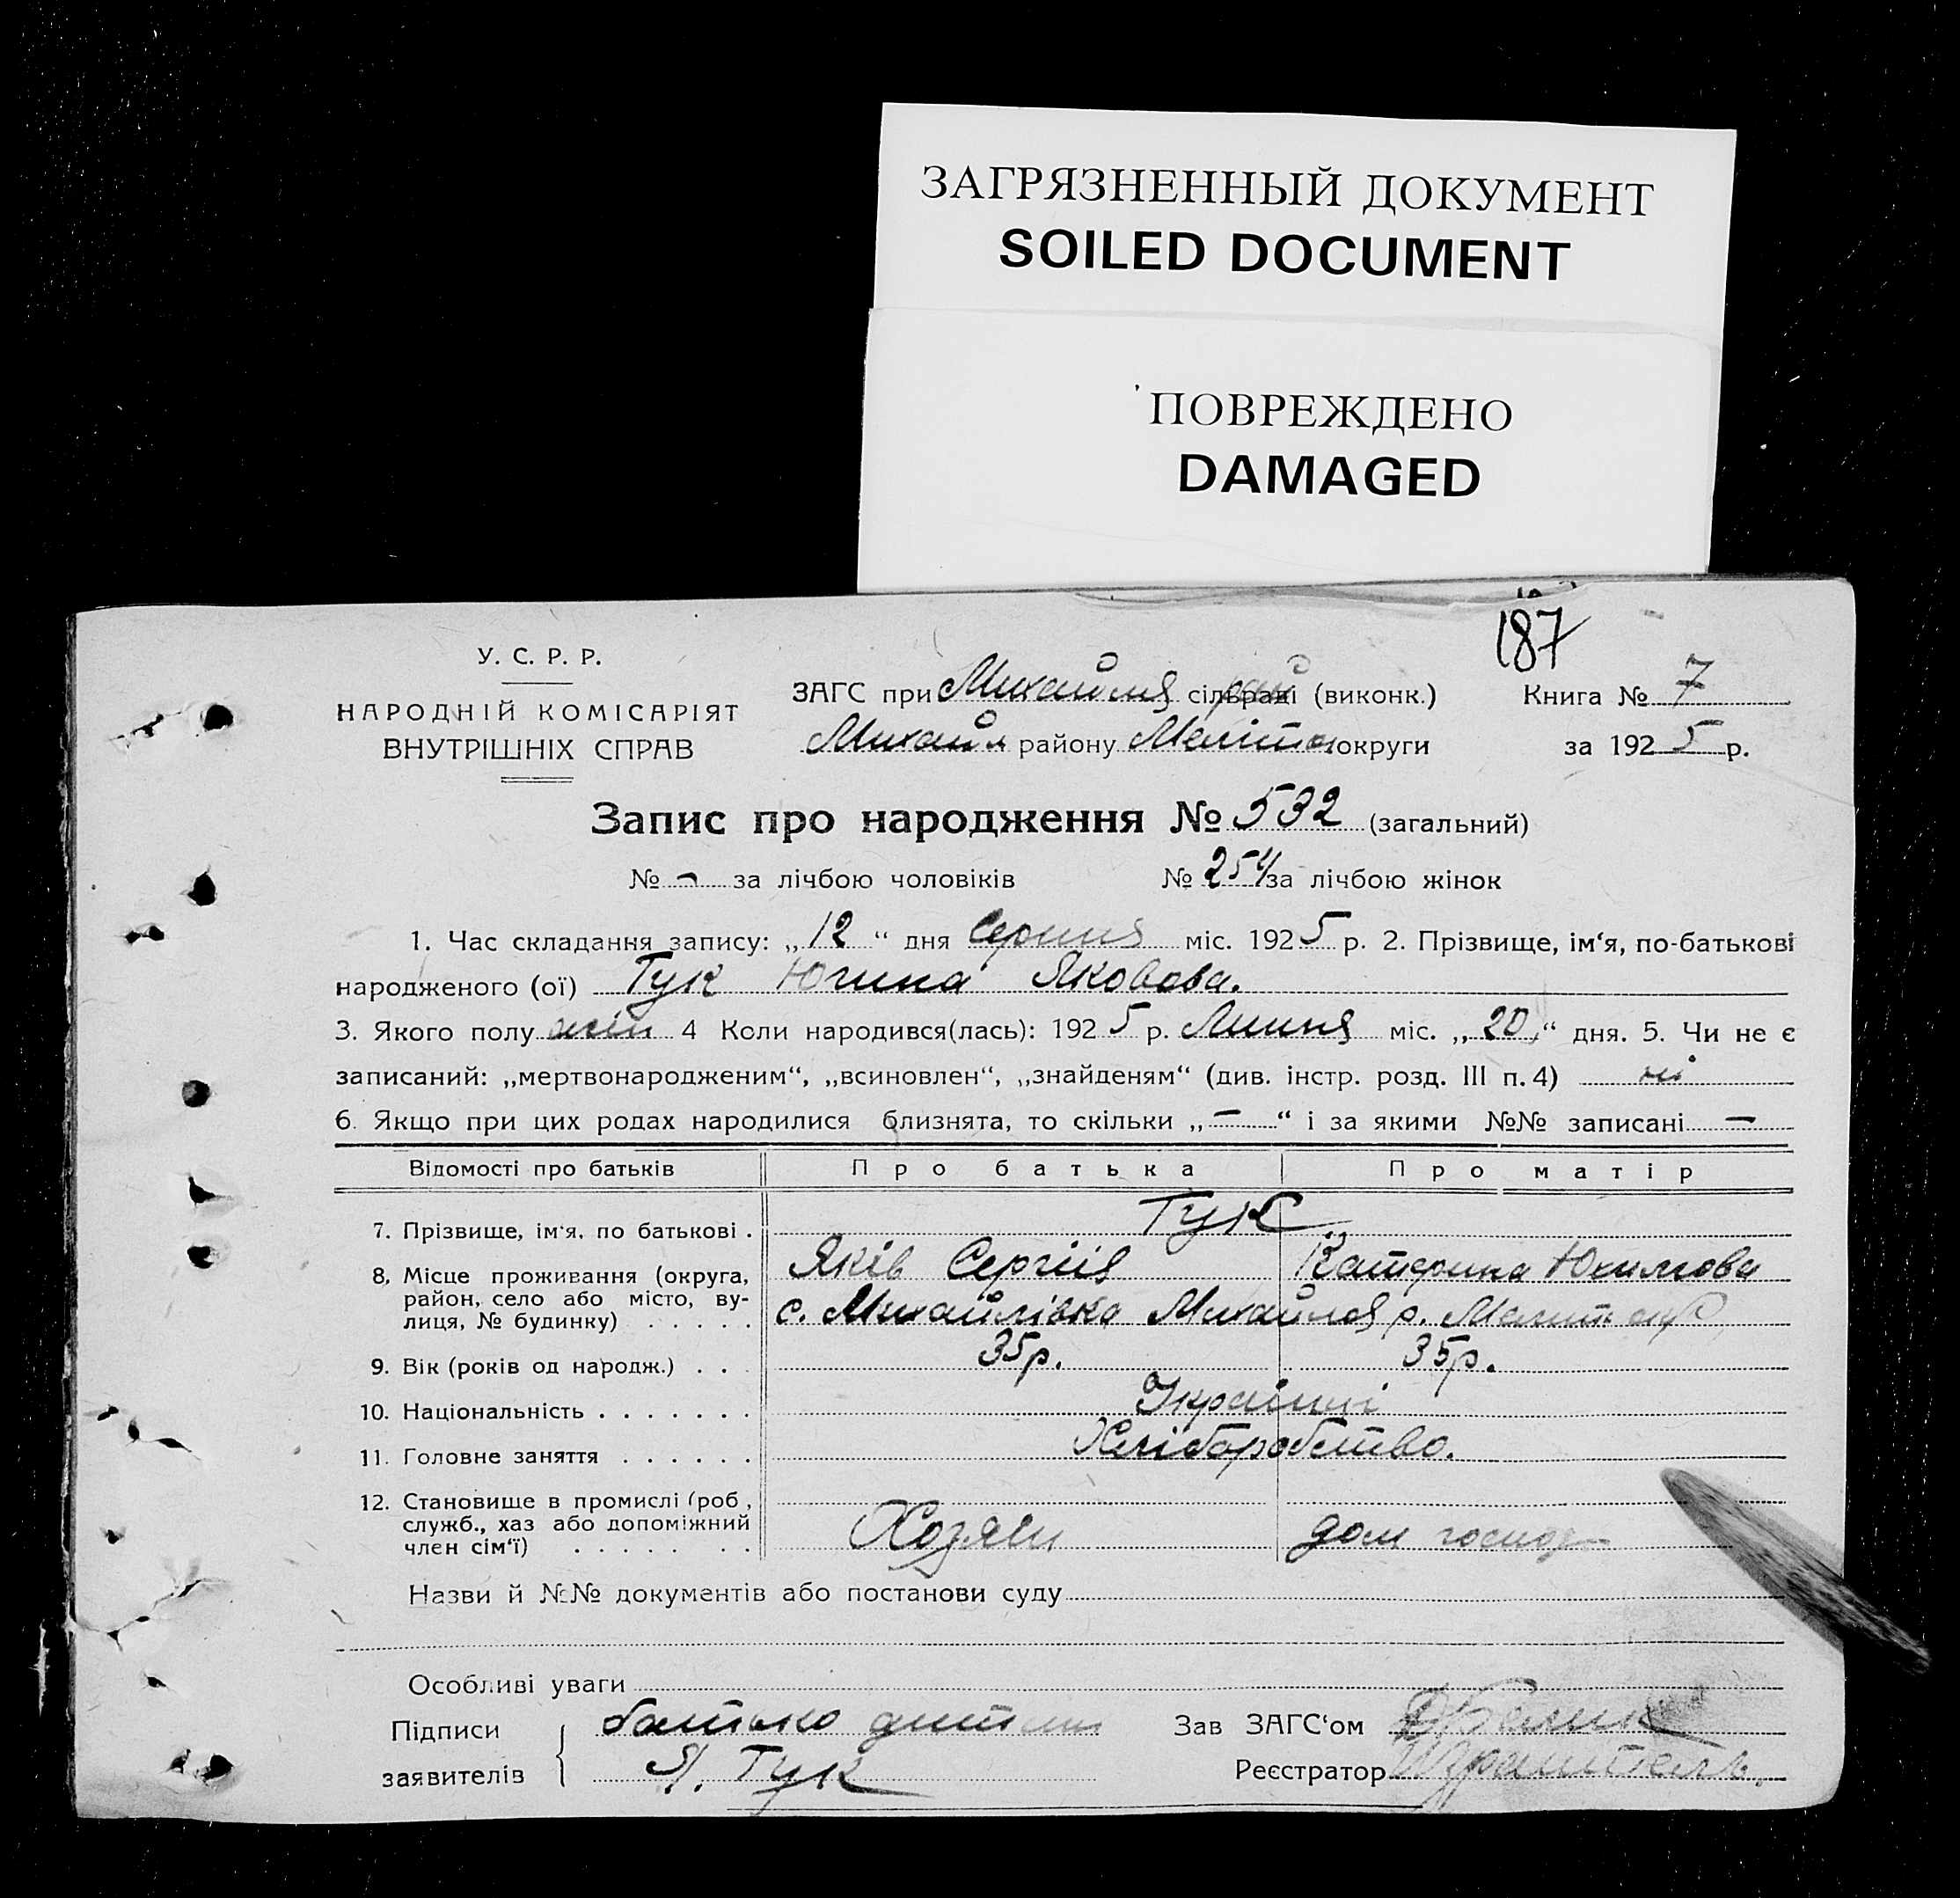 ЗАГРЯЗНЕННЫЙ ДОКУМЕНТ
SOILED DOCUMENT
ПОВРЕЖДЕНО
DAMAGED
187
У. С. Р. Р.
НАРОДНІЙ КОМІСАРІЯТ
ВНУТРІШНІХ СПРАВ
ЗАГС при Михайля сільраді (виконк.) Книга № 7
Михайл району Меліт округи за 1925 р.
Запис про народження № 532 (загальний)
№ - за лічбою чоловіків № 254 за лічбою жінок
1. Час складання запису: „12“ дня Серпня міс. 1925 р. 2. Прізвище, ім‘я, по-батькові
народженого (ої) Тук Югина Яковова.
3. Якого полу жін 4 Коли народився(лась): 1925 р. Липня міс. „20“ дня. 5. Чи не є
записаний: „мертвонародженим“, „всиновлен“, „знайденям“ (див. інстр. розд. III п. 4) ні
6. Якщо при цих родах народилися близнята, то скільки „—“ і за якими №№ записані —
Відомості про батьків Про батька Про матір
7. Прізвище, ім‘я, по батькові . Тук
Яків Сергіїв Катерина Юхимова
8. Місце проживання (округа,
район, село або місто, ву-
лиця, № будинку) . . . . . с. Михайлівка Михайлов р. Меліт окр
9. Вік (років од народж.) . . . 35р. 35р.
10. Національність . . . . . . . Україньці
11. Головне заняття . . . . . . Хліборобство.
12. Становище в промислі (роб.,
служб., хаз або допоміжний
член сім‘ї) . . . . . . . Хозяїн дом господ
Назви й №№ документів або постанови суду
Особливі уваги
Підписи
заявителів
батько дитини
Я. Тук
Зав ЗАГС‘ом
Реєстратор